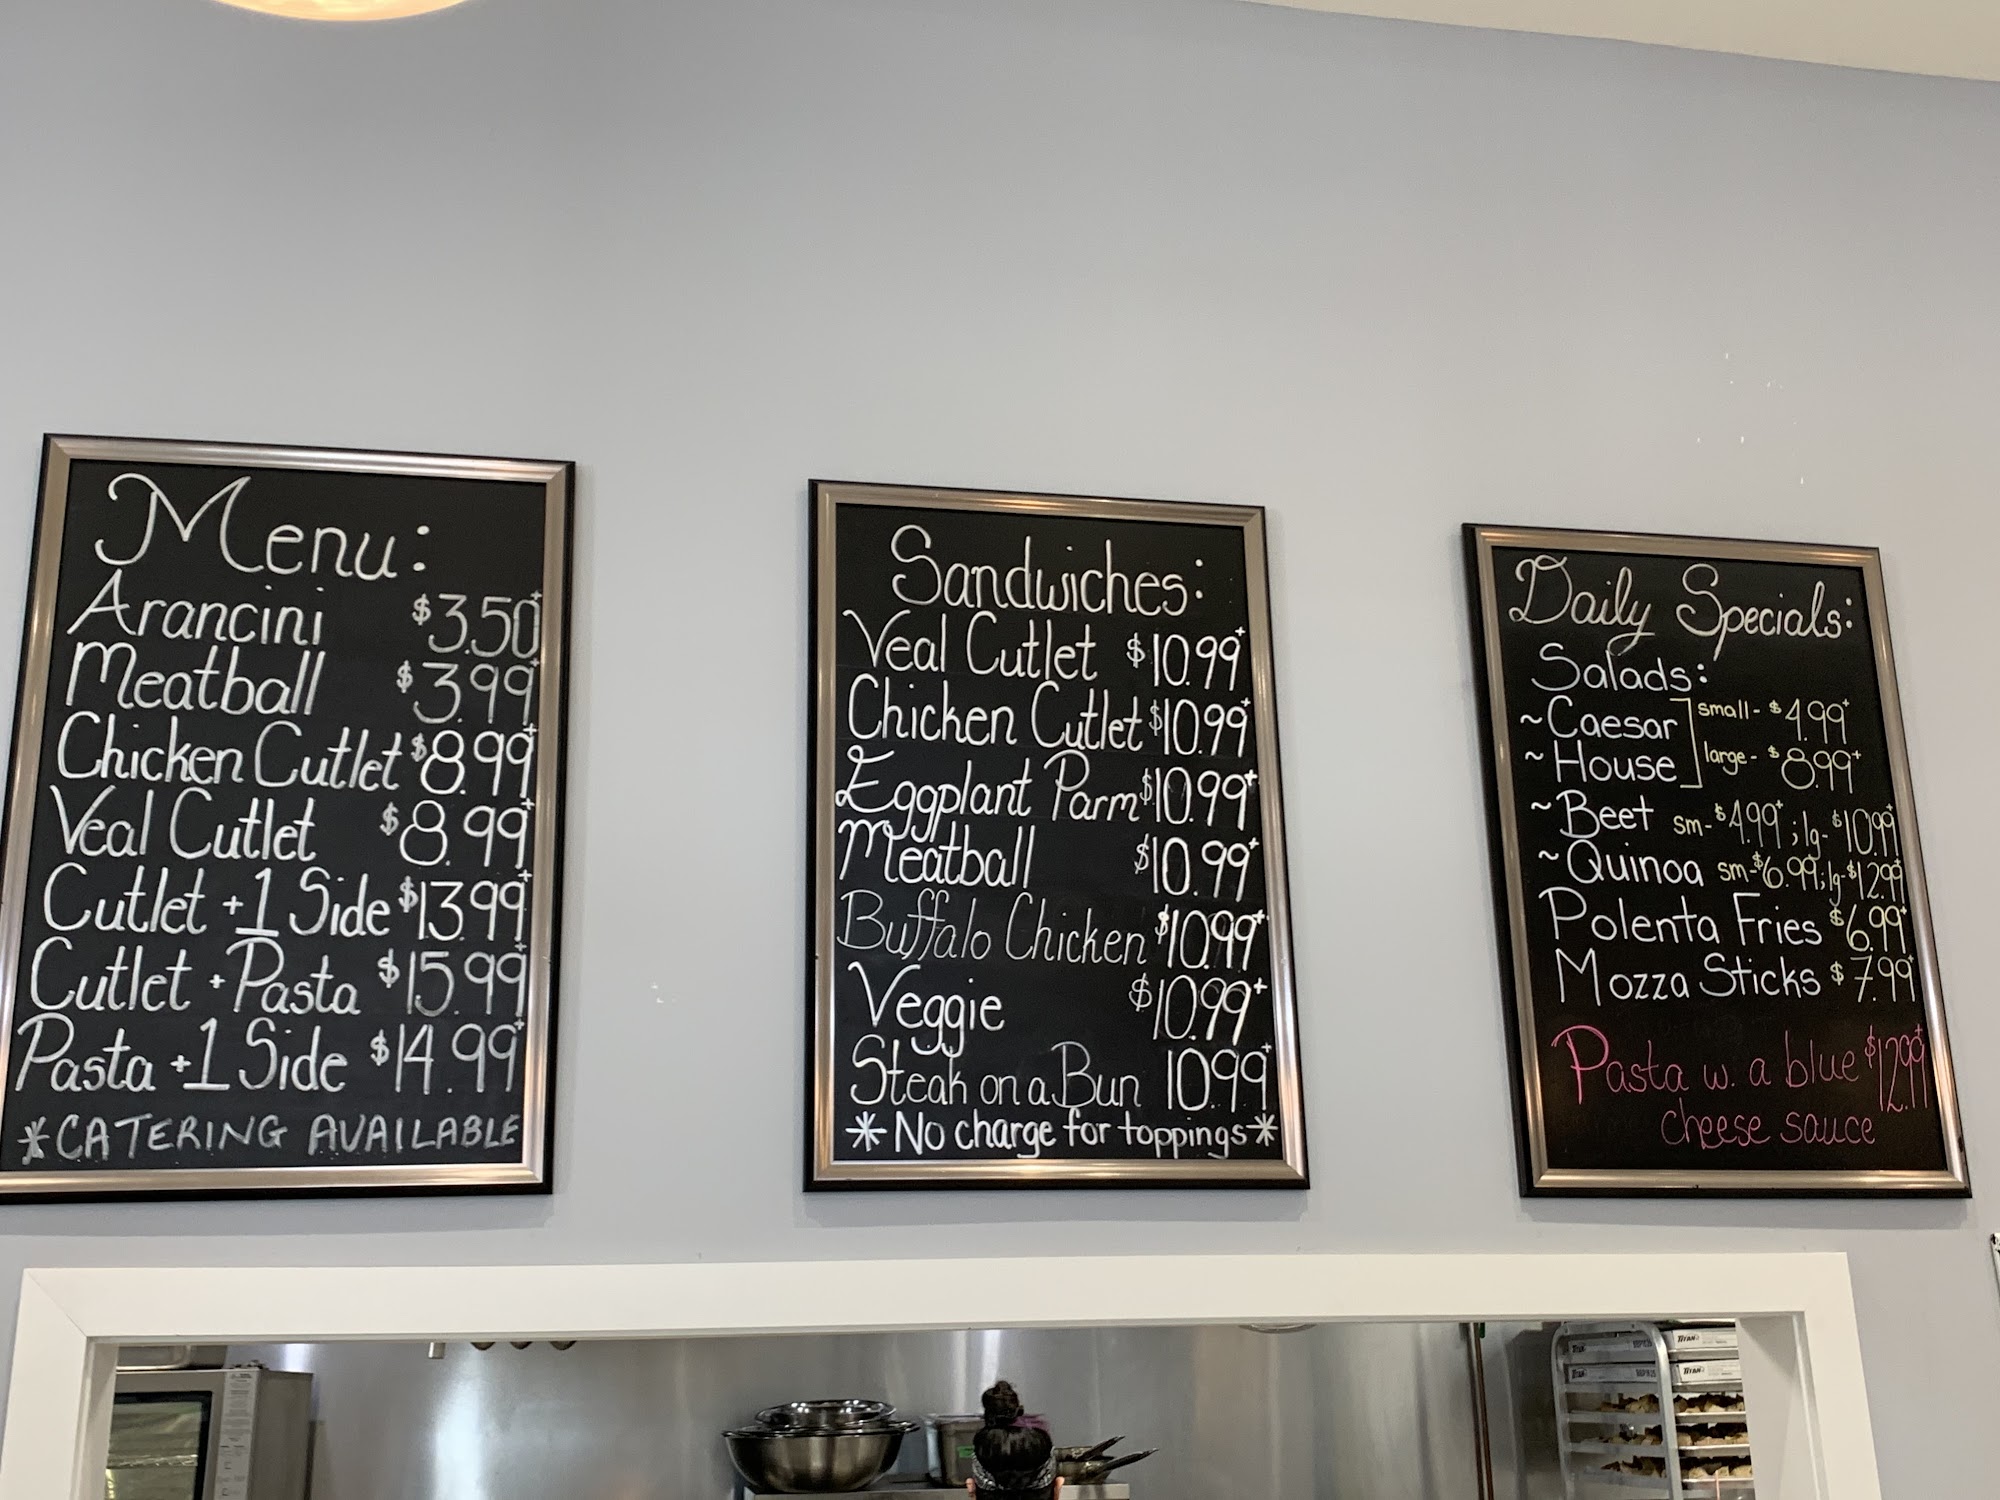 Menu:
Arancini $3.50+
Meatball $3.99+
Chicken Cutlet $8.99+
Veal Cutlet $8.99+
Cutlet +1 Side $13.99+
Cutlet + Pasta $15.99+
Pasta +1 Side $14.99+
*CATERING AVAILABLE
Sandwiches:
Veal Cutlet $10.99+
Chicken Cutlet $10.99+
Eggplant Parm $10.99+
Meatball $10.99+
Buffalo Chicken $10.99+
Veggie $10.99+
Steak on a Bun 10.99+
* No charge for toppings *
Daily Specials:
Salads:
~ Caesar small- $4.99+
~ House large- $8.99+
~ Beet sm- $4.99+; lg- $10.99+
~ Quinoa sm- $6.99+; lg- $12.99+
Polenta Fries $6.99+
Mozza Sticks $7.99+
Pasta w. a blue $12.99+
cheese sauce
TITAN
TITAN